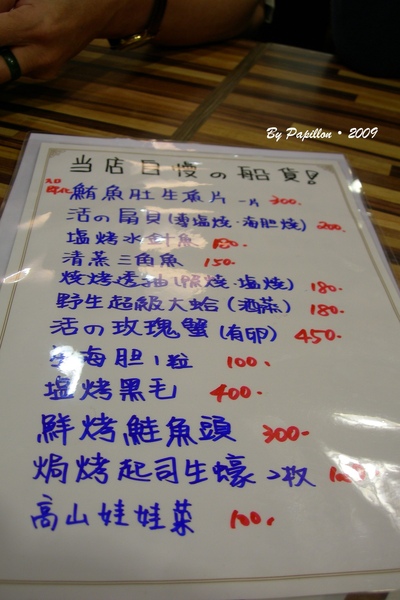 By Papillon • 2009
当店自慢の船貨!
入口即化 鮪魚肚生魚片 一片 300.
活の扇貝(薄塩燒.海胆燒) 200.
塩烤水針魚 180.
清蒸三角魚 150.
燒烤透抽(照燒.塩燒) 180.
野生超級大蛤(酒蒸) 180.
活の玫瑰蟹(有卵) 450.
海胆1粒 100.
塩烤黑毛 400.
鮮烤鮭魚頭 300.
焗烤起司生蠔2枚
高山娃娃菜 100.